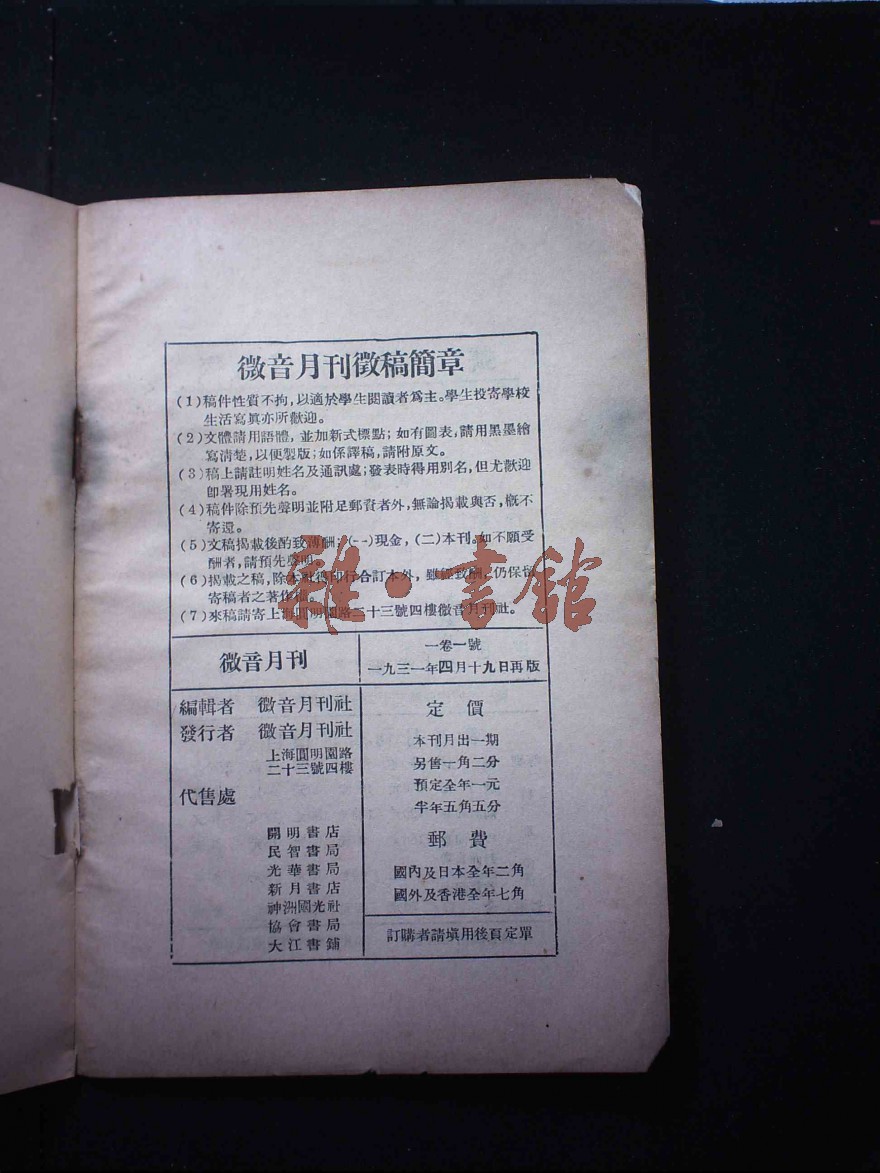 微音月刊徵稿簡章
(1)稿件性質不拘，以適於學生閱讀者爲主。學生投寄學校
生活寫眞亦所歡迎。
(2)文體請用語體，並加新式標點；如有圖表，請用黑墨繪
寫清楚，以便製版；如係譯稿，請附原文。
(3)稿上請註明姓名及通訊處；發表時得用別名，但尤歡迎
卽署現用姓名。
(4)稿件除預先聲明並附足郵資者外，無論揭載與否，槪不
寄還。
(5)文稿揭載後酌致薄酬；(一)現金，(二)本刊。如不願受
酬者，請預先聲明。
(6)揭載之稿，除本社得印行合訂本外，雖經致酬，仍保留
寄稿者之著作權。
(7)來稿請寄上海圓明園路二十三號四樓微音月刊社。
雜·書館
微音月刊
一卷一號
一九三一年四月十九日再版
編輯者 微音月刊社
發行者 微音月刊社
上海圓明園路
二十三號四樓
代售處
開明書店
民智書局
光華書局
新月書店
神洲國光社
協會書局
大江書鋪
定價
本刊月出一期
另售一角二分
預定全年一元
半年五角五分
郵費
國內及日本全年二角
國外及香港全年七角
訂購者請填用後頁定單